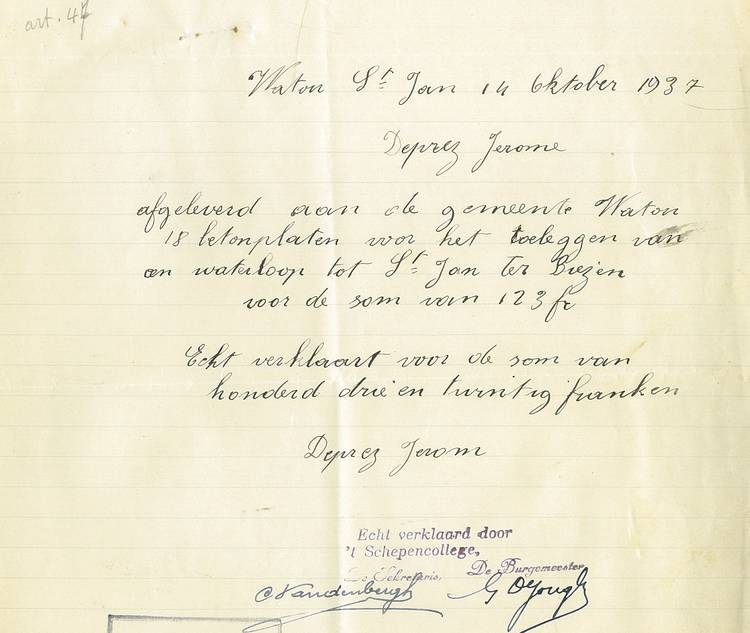 art. 47
Waton St Jan 14 Oktober 1937
Deprez Jerome
afgeleverd aan de gemeente Waton
18 betonplaten voor het toeleggen van
en waterloop tot St Jan ter Biezen
voor de som van 123 fr
Echt verklaart voor de som van
honderd drie en twintig franken
Deprez Jerom
Echt verklaard door
't Schepencollege,
De Sekretaris, De Burgemeester